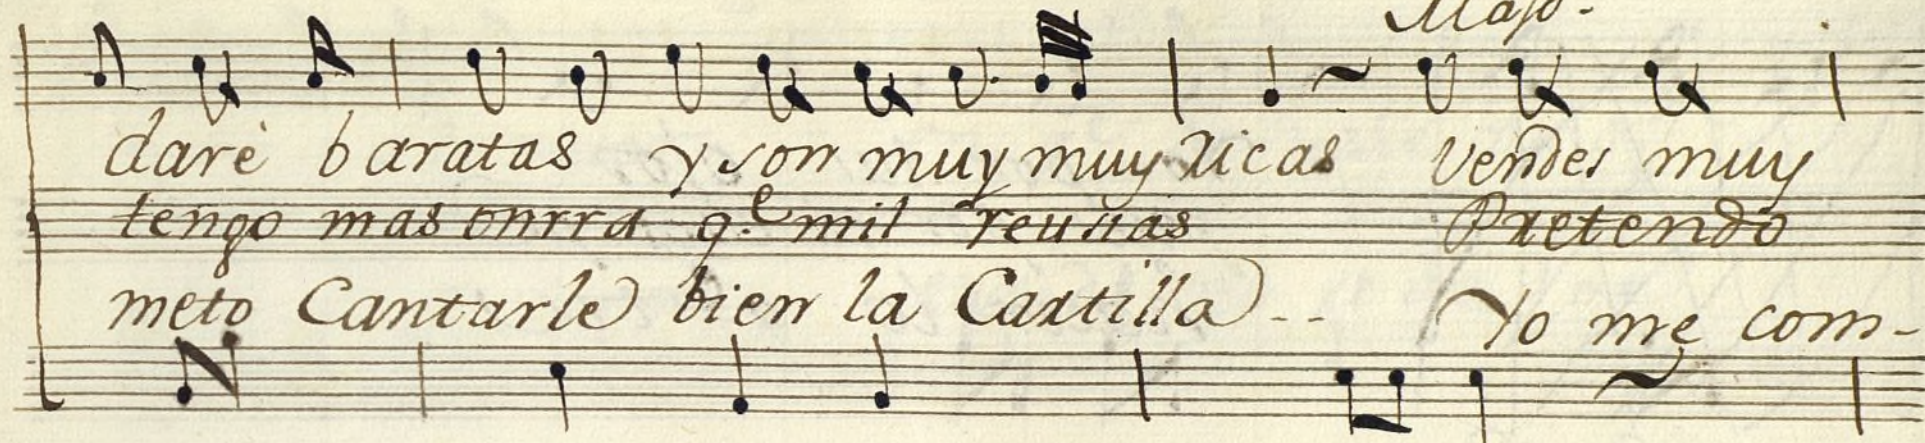 Majo.
darè baratas y son muy muy ricas vendes muy
tengo mas onrra q.e mil usias Pretendo
meto Cantarle bien la Cartilla -- Yo me com-